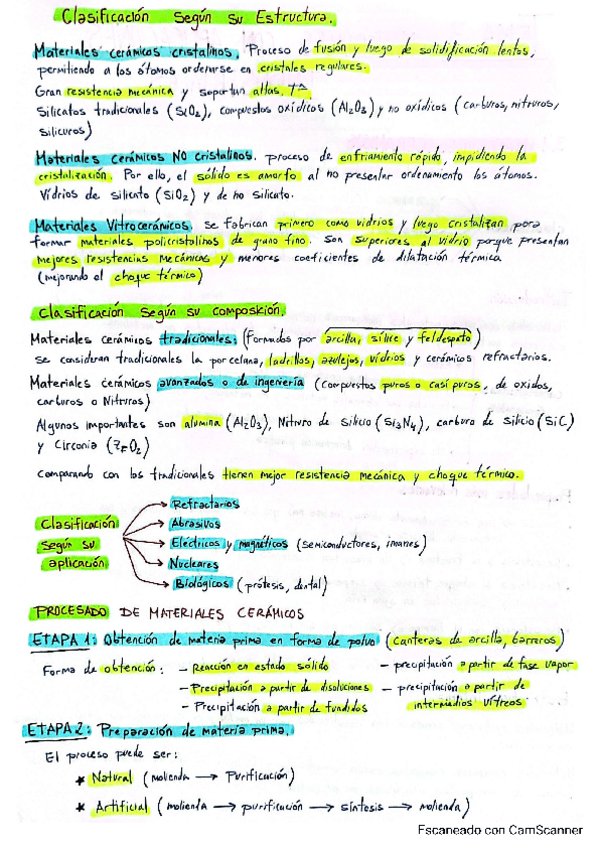 Clasificación Según su Estructura.
Materiales cerámicos cristalinos. Proceso de fusión y luego de solidificación lentos,
permitiendo a los átomos ordenarse en cristales regulares.
Gran resistencia mecánica y soportan altas. Tª
Silicatos tradicionales (SiO₂), compuestos oxídicos (Al₂O₃) y no oxídicos (carburos, nitruros,
siliciuros)
Materiales cerámicos NO cristalinos. proceso de enfriamiento rápido, impidiendo la
cristalización. Por ello, el sólido es amorfo al no presentar ordenamiento los átomos.
Vidrios de silicato (SiO₂) y de no silicato.
Materiales Vitrocerámicos. se fabrican primero como vidrios y luego cristalizan para
formar materiales policristalinos de grano fino. son superiores al vidrio porque presentan
mejores resistencias mecánicas y menores coeficientes de dilatación térmica
(mejorando el choque térmico)
Clasificación Según su composición.
Materiales cerámicos tradicionales: (Formados por arcilla, sílice y feldespato)
se consideran tradicionales la porcelana, ladrillos, azulejos, vidrios y cerámicos refractarios.
Materiales cerámicos avanzados o de ingeniería (compuestos puros o casi puros, de oxidos,
carburos o Nitruros)
Algunos importantes son alumina (Al₂O₃), Nitruro de silicio (Si₃N₄), carburo de silicio (SiC)
y Circonia (ZrO₂)
comparando con los tradicionales tienen mejor resistencia mecánica y choque térmico.
Clasificación según su aplicación
→ Refractarios
→ Abrasivos
→ Eléctricos y magnéticos (semiconductores, imanes)
→ Nucleares
→ Biológicos (prótesis, dental)
PROCESADO DE MATERIALES CERÁMICOS
ETAPA 1: Obtención de materia prima en forma de polvo (canteras de arcilla, barreros)
Forma de obtención: - Reacción en estado sólido - precipitación a partir de fase vapor
- Precipitación a partir de disoluciones - precipitación a partir de
- Precipitación a partir de fundidos intermedios vítreos
ETAPA 2: Preparación de materia prima.
El proceso puede ser:
* Natural (molienda → Purificación)
* Artificial (molienda → purificación → síntesis → molienda)
Escaneado con CamScanner